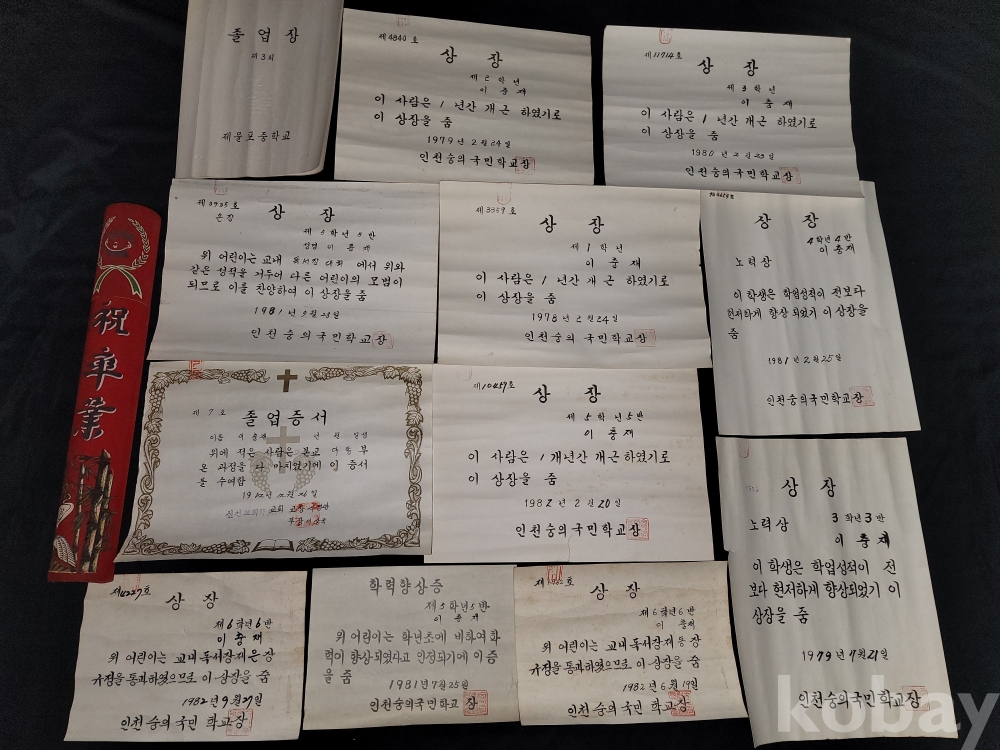 졸 업 장
제 3 회
제물포중학교
제4840호
상 장
제 2 학년
이 충 재
이 사람은 1 년간 개근 하였기로
이 상장을 줌
1979 년 2 월 24 일
인천숭의국민학교장
제11714호
상 장
제 3 학년
이 충 재
이 사람은 1 년간 개근 하였기로
이 상장을 줌
1980 년 2 월 23 일
인천숭의국민학교장
제3935호
은장
상 장
제 5 학년 5 반
성명 이 충 재
위 어린이는 교내 독서감 대회 에서 위와
같은 성적을 거두어 다른 어린이의 모범이
되므로 이를 찬양하여 이 상장을 줌
1981 년 9 월 28 일
인천숭의국민학교장
제3859호
상 장
제 1 학년
이 충 재
이 사람은 1 년간 개근 하였기로
이 상장을 줌
1978 년 2 월 24 일
인천숭의 국민학교장
상 장
4 학년 4 반
이 충 재
노력상
이 학생은 학업성적이 전보다
현저하게 향상 되었기 이 상장을
줌
1981 년 2 월 25 일
인천숭의국민학교장
祝卒業
제 7 호
졸업증서
이름 이 충재 년 월 일생
위에 적은 사람은 본교 부
온 과정을 다 마치었기에 이 증서
를 수여함
교회
제10459호
상 장
제 5 학년 5 반
이 충 재
이 사람은 1 개년간 개근 하였기로
이 상장을 줌
1982 년 2 월 20 일
인천숭의국민학교장
상 장
3 학년 3 반
노력상
이 충 재
이 학생은 학업성적이 전
보다 현저하게 향상되었기 이
상장을 줌
1979 년 7 월 21 일
인천숭의국민학교장
제4227호
상 장
제 6 학년 6 반
이 충 재
위 어린이는 교내 독서장제 은 장
규정을 통과하였으므로 이 상장을 줌
1982 년 9 월 29 일
인천 숭의국민 학교장
학력향상증
제 5 학년 5 반
이 충 재
위 어린이는 학년초에 비하여 학
력이 향상 되었다고 인정되기에 이 증
을 줌
1981 년 7 월 25 일
인천숭의국민학교 장
상 장
제 6 학년 6 반
이 충재
위 어린이는 교내 독서장제 동 장
규정을 통과하였으므로 이 상장을 줌
1982 년 6 월 19 일
인천 숭의국민학교장
kobay